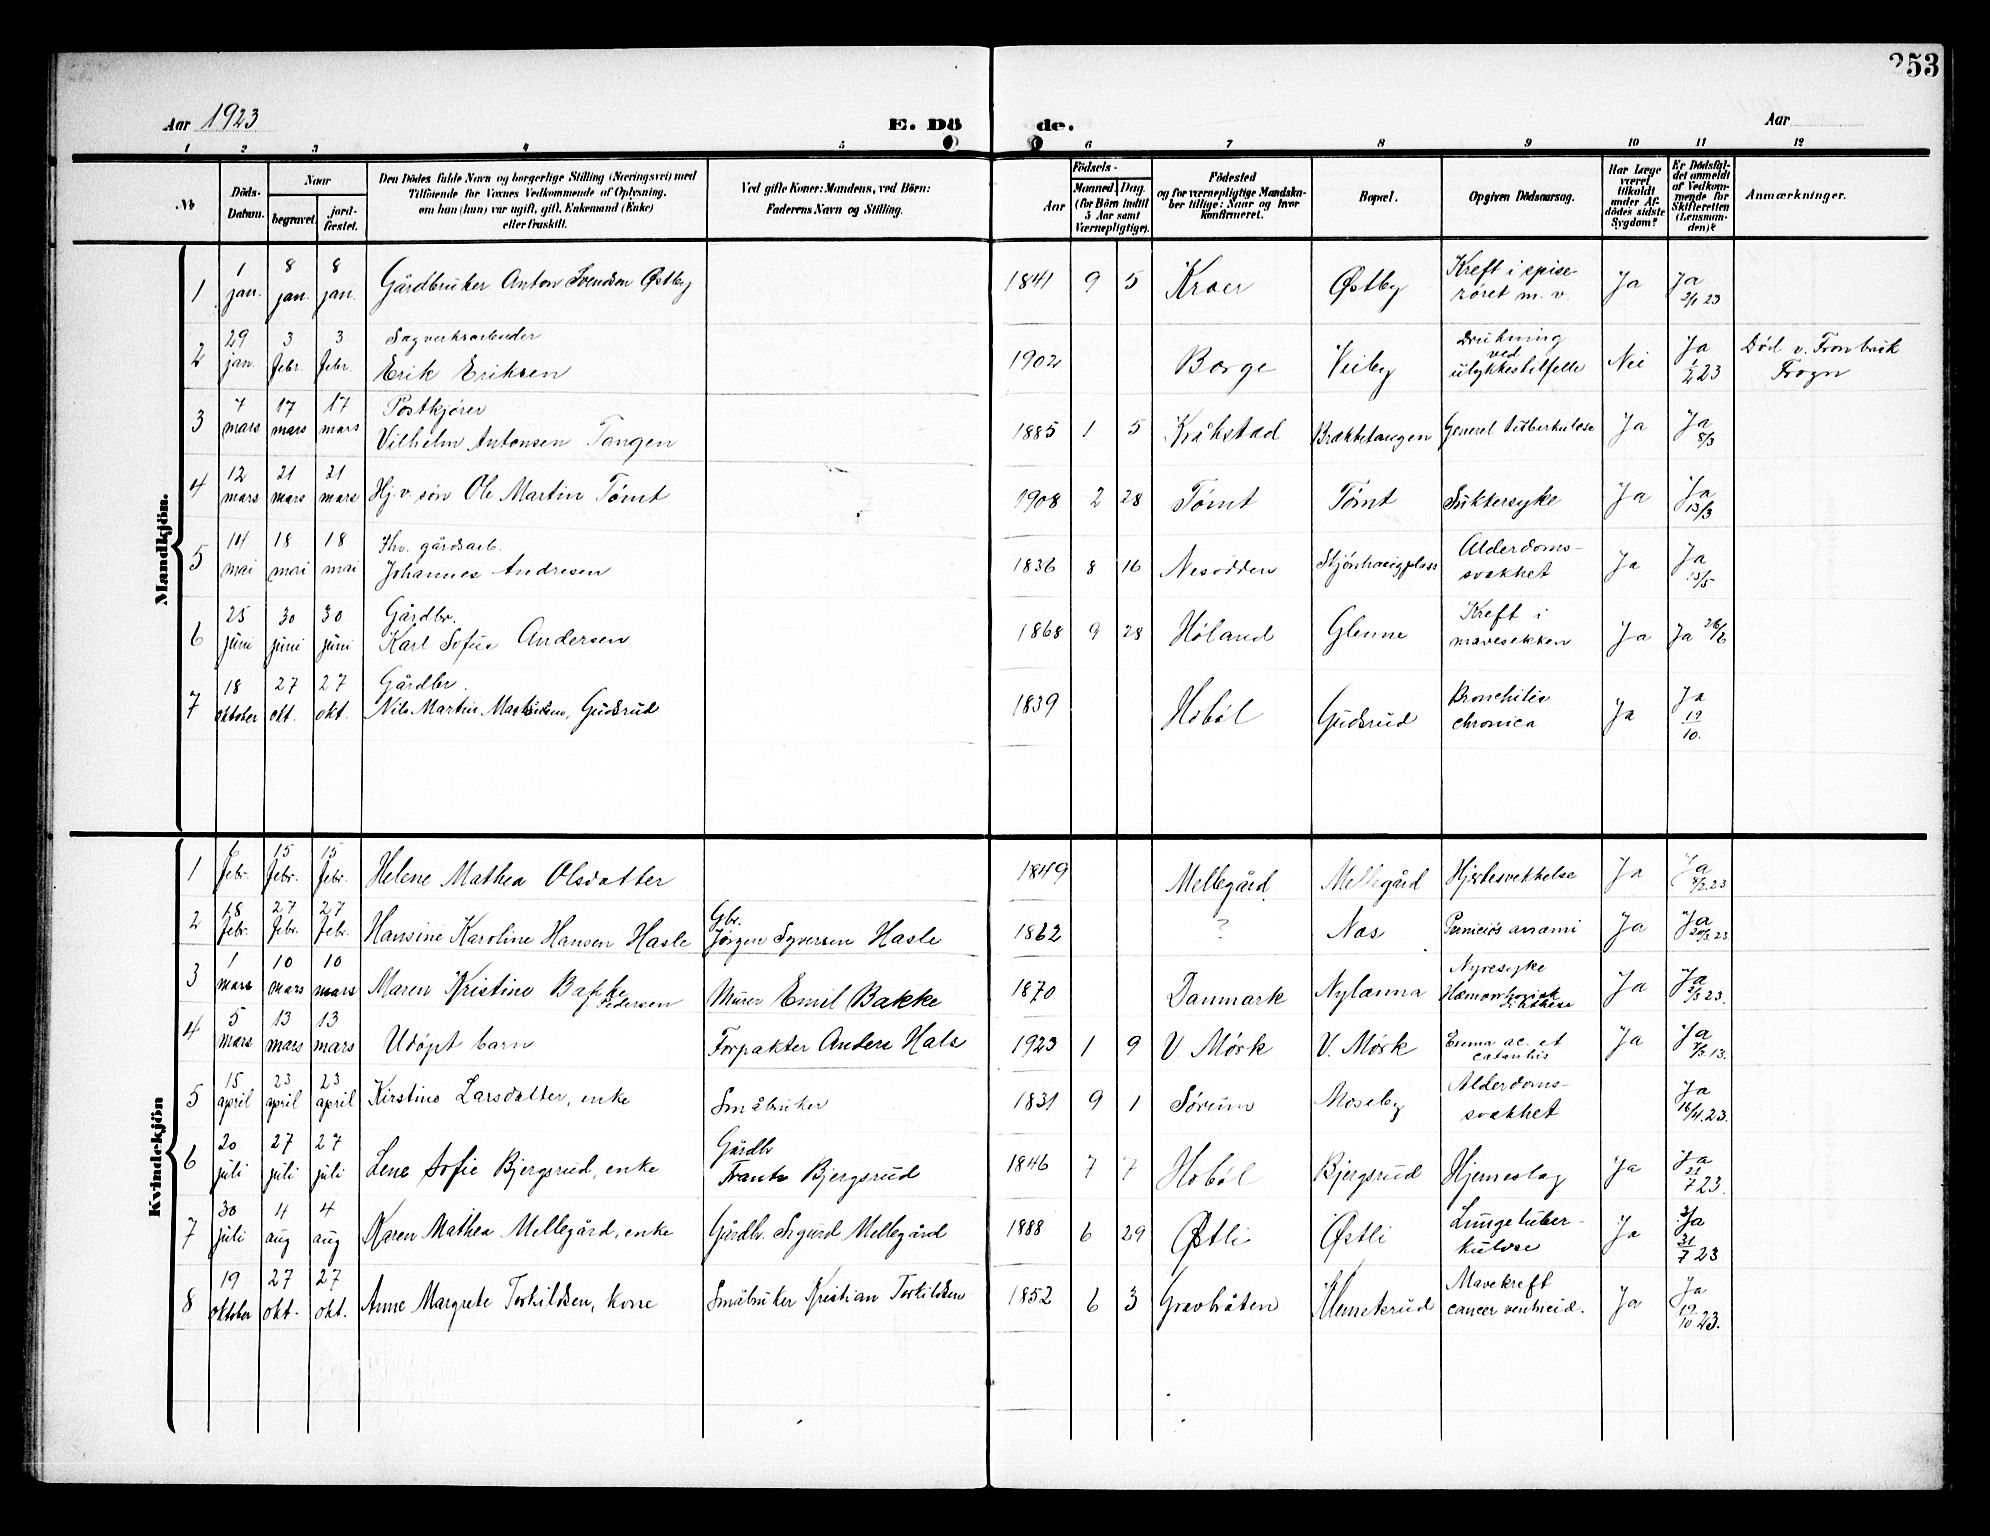 253
Aar 1923
E. Dö
de.
Aar
1 2 3 4 5 6 7 8 9 10 11 12
№
Döds-Datum.
Naar
begravet.
jordfæstet.
Den Dödes fulde Navn og borgerlige Stilling (Næringsvei) med
Tilföiende for Voxnes Vedkommende af Oplysning,
om han (hun) var ugift, gift, Enkemand (Enke)
eller fraskilt.
Ved gifte Koner: Mandens, ved Börn:
Faderens Navn og Stilling.
Födsels-
Aar
Maaned. Dag.
(for Börn indtil
5 Aar samt
Værnepligtige).
Födested
og for værnepligtige Mandskaber tillige: Naar og hvor
konfirmeret.
Bopæl.
Opgiven Dödsaarsag.
Har Læge
været
tilkaldt
under Afdödes sidste
Sygdom?
Er Dödsfaldet anmeldt
af Vedkommende for
Skifteretten
(Lensmanden)?
Anmærkninger.
Mandkjön.
1 1 jan. 8 jan. 8 jan. Gårdbruker Anton Svendsen Østby 1841 9 5 Kraer Østby Kreft i spiserøret m. v. Ja Ja 2/1 23
2 29 jan. 3 febr. 3 febr. Sagverksarbeider
Erik Eriksen 1902 Borge Veiby Drukning ved ulykkestilfelle Nei Ja 1/2 23 Død v. Fronbrik
Frogn
3 7 mars 17 mars 17 mars Postkjører
Vilhelm Antonsen Tangen 1885 1 5 Kråkstad Brækketangen Generel tuberkulose Ja Ja 8/3
4 12 mars 21 mars 21 mars Hj. v. søn Ole Martin Tømt 1908 2 28 Tømt Tømt Sukkersyke Ja Ja 13/3
5 14 mai 18 mai 18 mai Fhv. gårdsarb.
Johannes Andresen 1836 8 16 Nesodden Alderdomssvakhet Ja Ja 15/5
6 25 juni 30 juni 30 juni Gårdbr.
Karl Sofus Andersen 1868 9 28 Høland Glenne Kreft i mavesekken Ja Ja 26/6
7 18 oktober 27 okt. 27 okt. Gårdbr.
Nils Martin Mathisen, Gudsrud 1839 Hobøl Gudsrud Bronchitis chronica Ja Ja 19/10.
Kvindekjön
1 6 febr. 15 febr. 15 febr. Helene Mathea Olsdatter 1849 Mellegård. Mellegård Hjertesvekkelse Ja Ja 8/2. 23
2 18 febr. 27 febr. 27 febr. Hansine Karoline Hansen Hasle Gbr.
Jørgen Syversen Hasle 1862 ? Nas Perniciøs anæmi Ja Ja 23.
3 1 mars 10 mars 10 mars Maren Kristine Bakke
Pedersen Murer Emil Bakke 1870 Danmark Nylanna Nyresyke
Hæmorrhagisk diathese Ja Ja 2/3 23.
4 5 mars 13 mars 13 mars Udøpt barn Forpakter Anders Hals 1923 1 9 V. Mørk V. Mørk ac. et Ja Ja 7/3. 13.
5 15 april 23 april 23 april Kirstine Larsdatter, enke Småbruker 1831 9 1 Sørum Moseby Alderdomssvakhet Ja 16/4. 23.
6 20 juli 27 juli 27 juli Lene Sofie Bjergsrud, enke Gårdb.
Frants Bjergsrud 1846 7 7 Hobøl Bjergsrud Hjerneslag Ja Ja 21/7 23.
7 30 juli 4 aug 4 aug Karen Mathea Mellegård, enke Gårdb. Sigurd Mellegård 1888 6 29 Østli Østli Lungetuberkulose Ja Ja 31/7 23
8 19 oktober 27 okt. 27 okt. Anne Margrete Torkildsen, kone Småbruker Kristian Torkildsen 1852 6 3 Gravbråten Klemetsrud Mavekreft
cancer ventricid. Ja Ja 19/10 23.